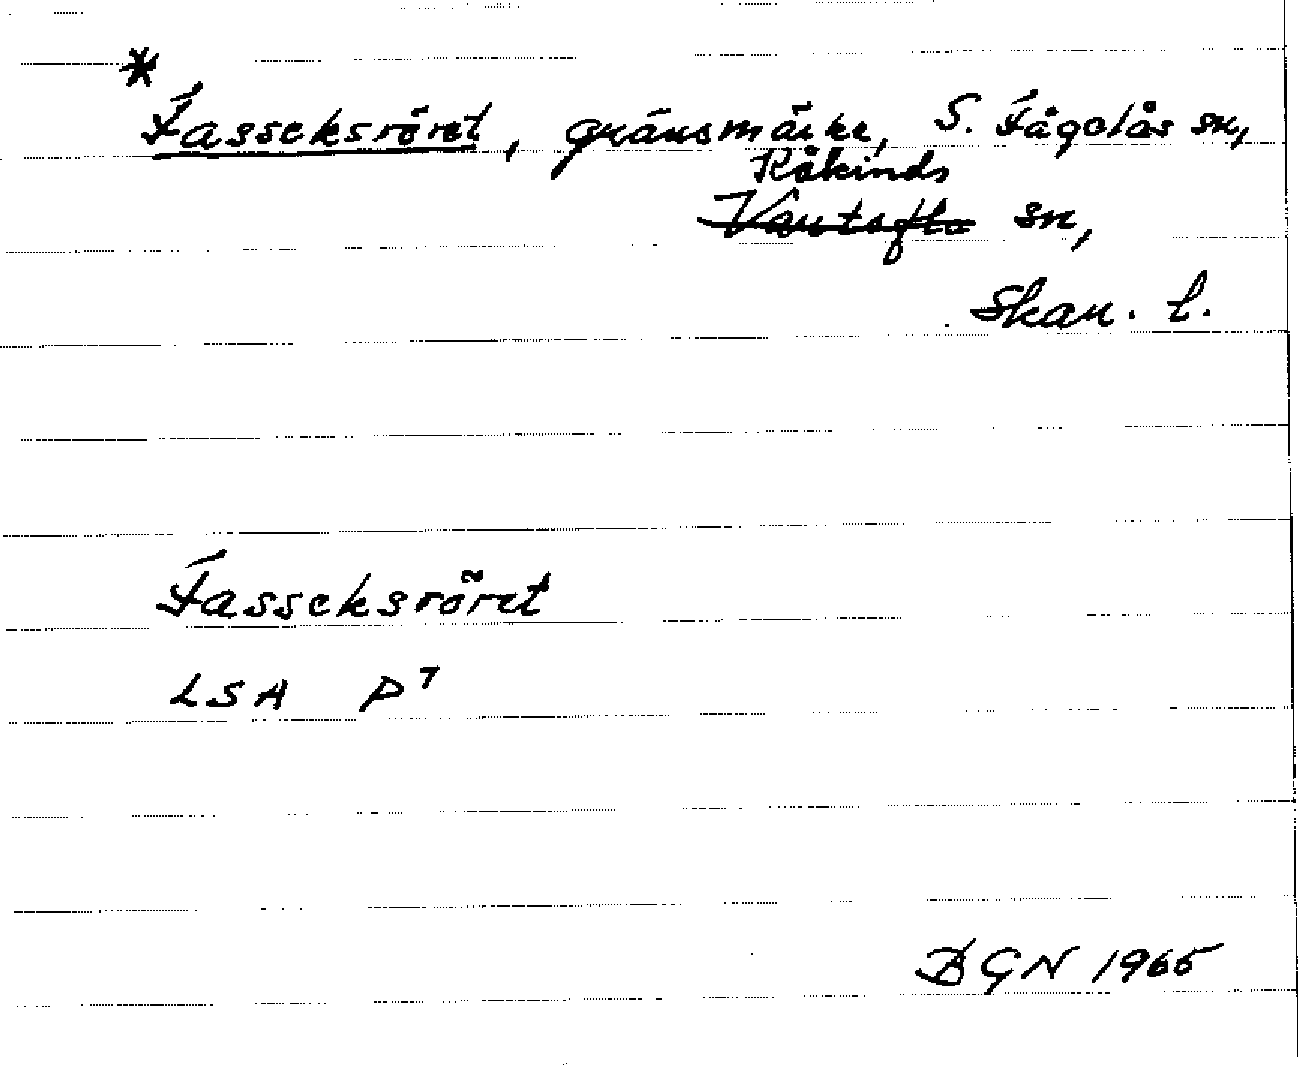 *
Fasseksröret, gränsmärke, S. Fågelås sn,
Råkinds
Vartofta sn,
Skar. l.
Fasseksröret
LSA P7
BGN 1965